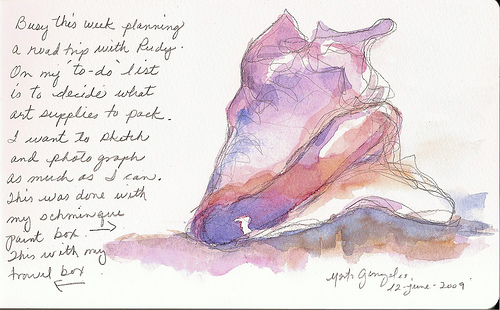 Busy this week planning
a road trip with Rudy.
On my 'to-do' list
is to decide what
art supplies to pack.
I want to sketch
and photograph
as much as I can.
This was done with
my schminque
paint box →
This with my
travel box ←
Gonzales
12-june-2009